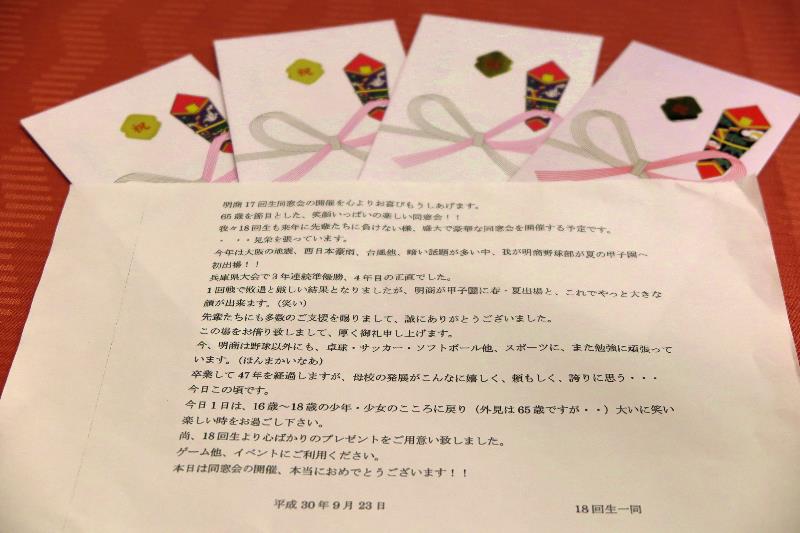 祝
祝
祝
祝
明商17回生同窓会の開催を心よりお喜びもうしあげます。
65歳を節目とした、笑顔いっぱいの楽しい同窓会！！
我々18回生も来年に先輩たちに負けない様、盛大で豪華な同窓会を開催する予定です。
・・・見栄を張っています。
今年は大阪の地震、西日本豪雨、台風他、暗い話題が多い中、我が明商野球部が夏の甲子園へ
初出場！！
兵庫県大会で3年連続準優勝、4年目の正直でした。
1回戦で敗退と厳しい結果となりましたが、明商が甲子園に春・夏出場と、これでやっと大きな
顔が出来ます。(笑い)
先輩たちにも多数のご支援を賜りまして、誠にありがとうございました。
この場をお借り致しまして、厚く御礼申し上げます。
今、明商は野球以外にも、卓球・サッカー・ソフトボール他、スポーツに、また勉強に頑張って
います。(ほんまかいなあ)
卒業して47年を経過しますが、母校の発展がこんなに嬉しく、頼もしく、誇りに思う・・・
今日この頃です。
今日1日は、16歳～18歳の少年・少女のこころに戻り（外見は65歳ですが・・）大いに笑い
楽しい時をお過ごし下さい。
尚、18回生より心ばかりのプレゼントをご用意い致しました。
ゲーム他、イベントにご利用ください。
本日は同窓会の開催、本当におめでとうございます！！
平成30年9月23日
18回生一同